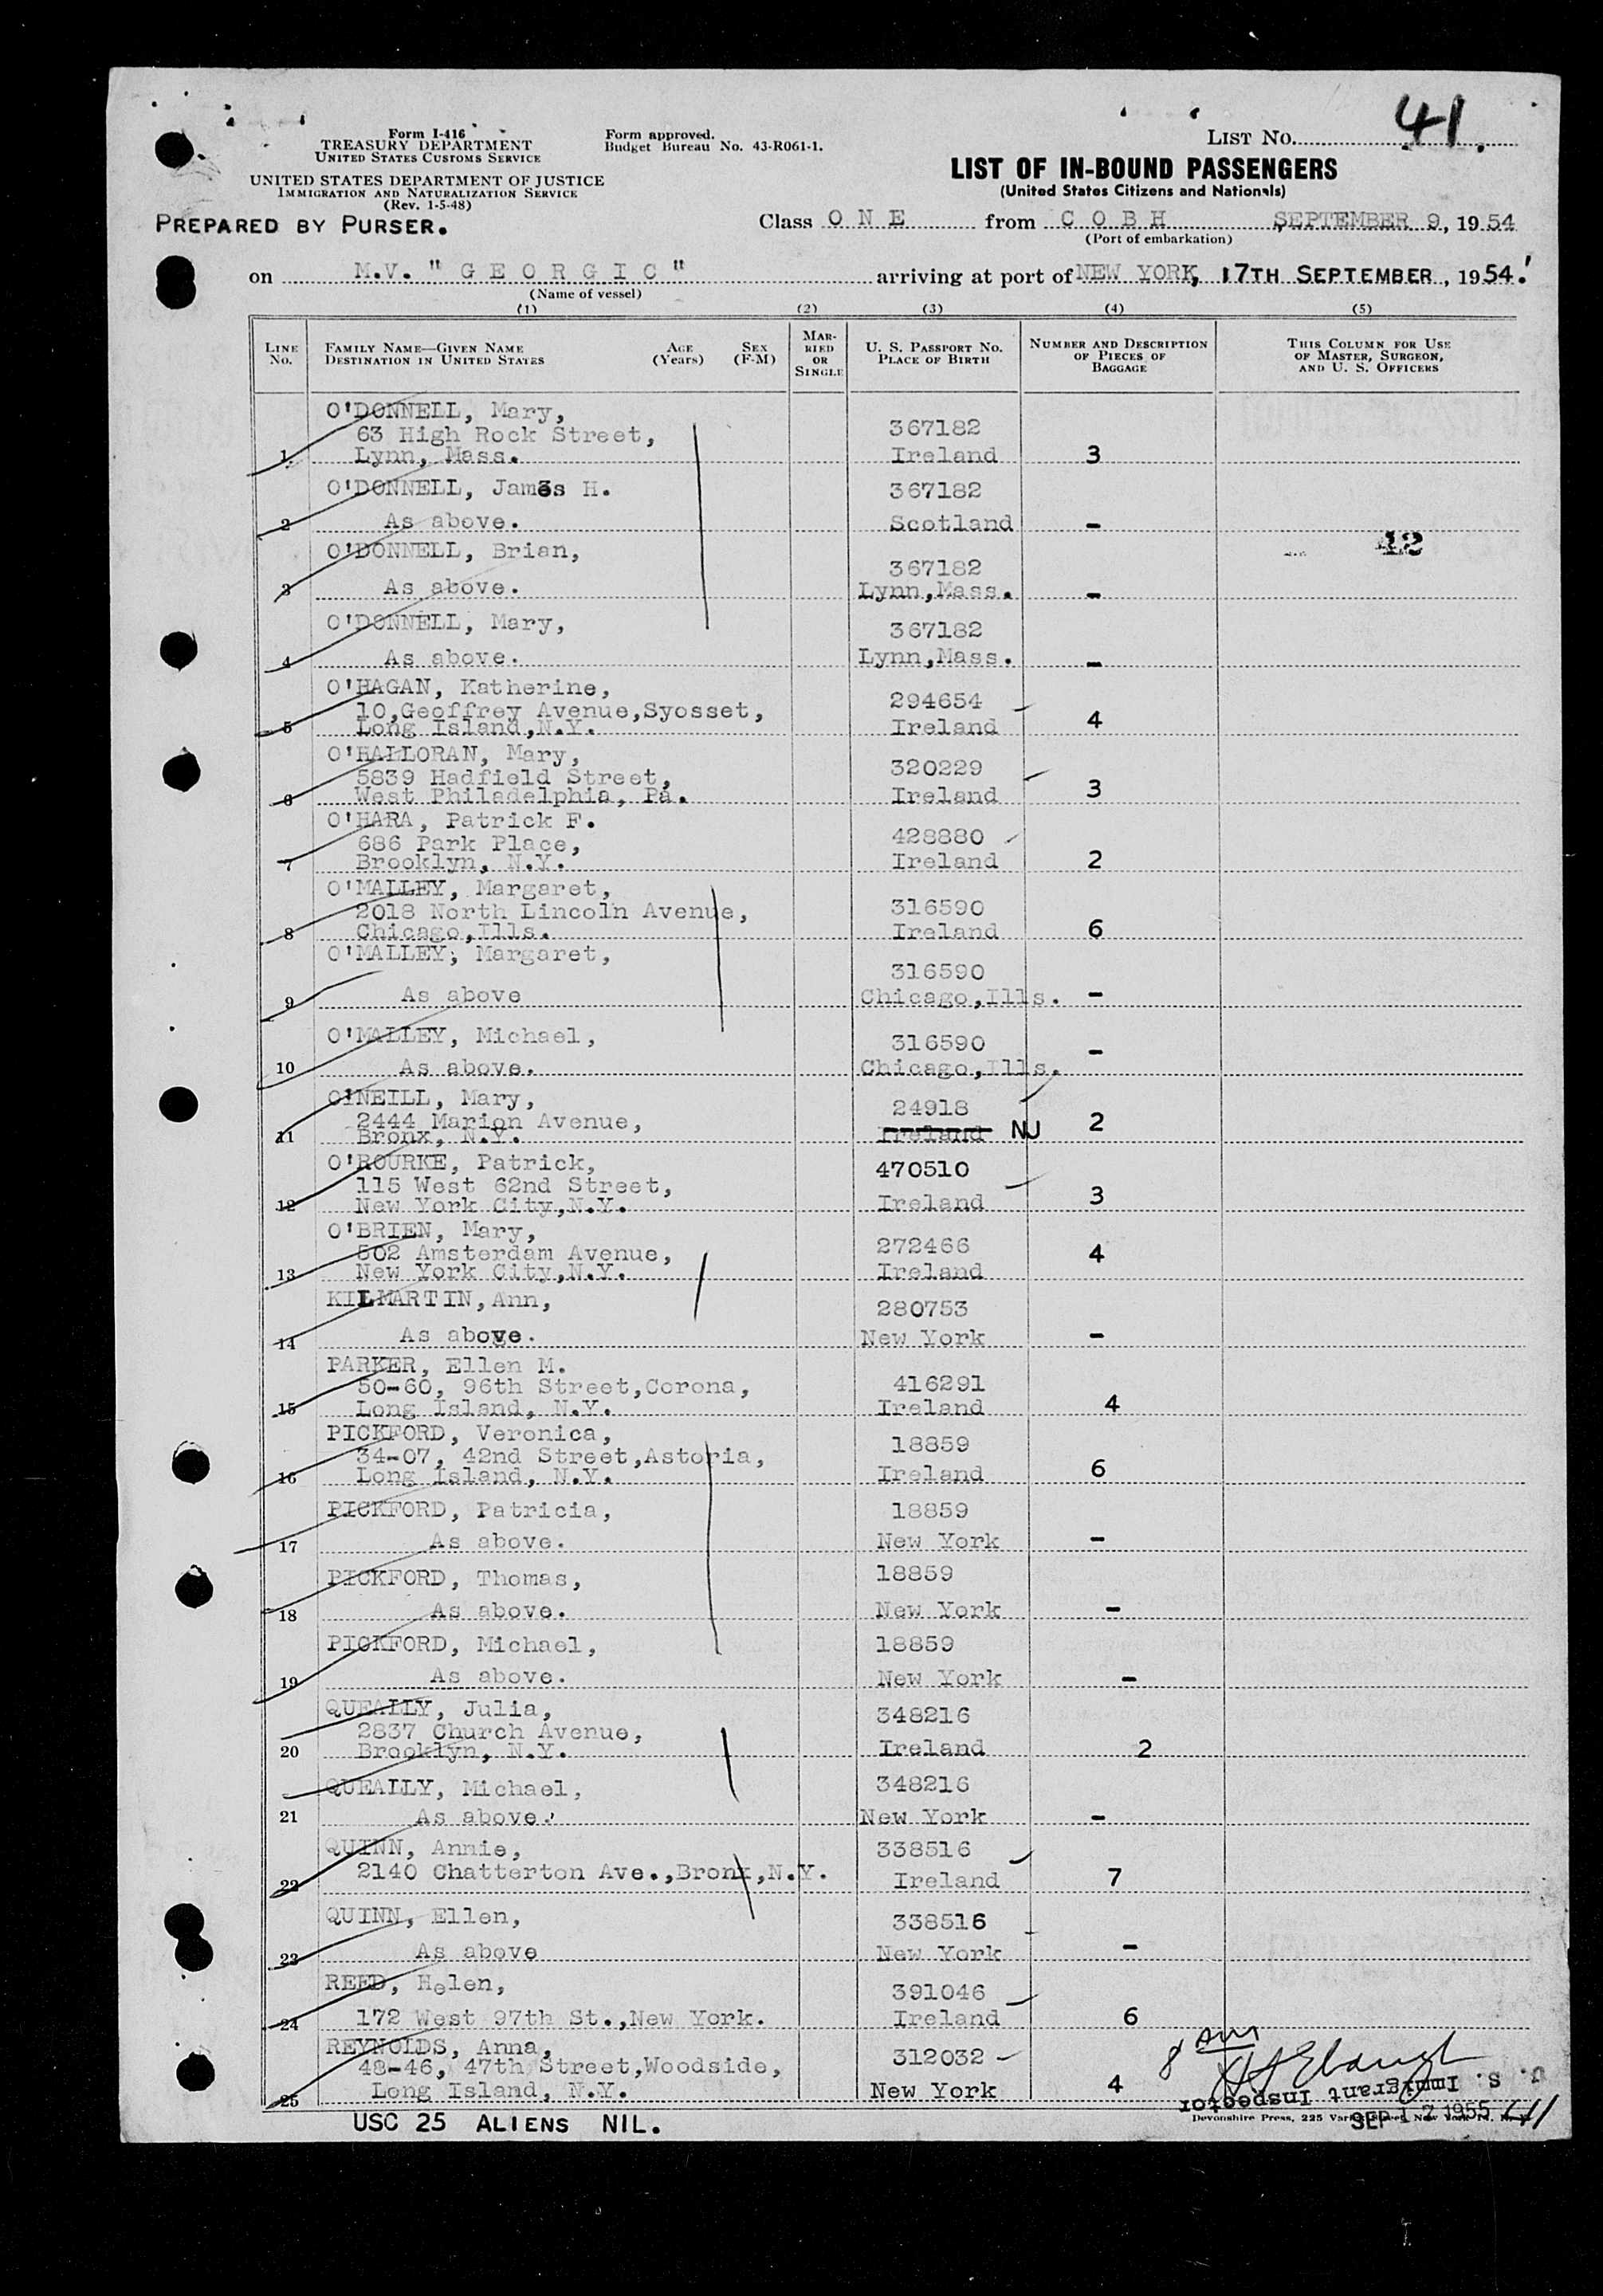 Form I-416
TREASURY DEPARTMENT
UNITED STATES CUSTOMS SERVICE
UNITED STATES DEPARTMENT OF JUSTICE
IMMIGRATION AND NATURALIZATION SERVICE
(Rev. 1-5-48)
PREPARED BY PURSER.
Form approved.
Budget Bureau No. 43-R061-1.
LIST No. 41
LIST OF IN-BOUND PASSENGERS
(United States Citizens and Nationals)
Class O N E from C O B H SEPTEMBER 9, 1954
(Port of embarkation)
on M.V. " G E O R G I C " arriving at port of NEW YORK, 17TH SEPTEMBER, 1954.
(Name of vessel)
(1) (2) (3) (4) (5)
LINE No. FAMILY NAME—GIVEN NAME DESTINATION IN UNITED STATES AGE (Years) SEX (F-M) MARRIED OR SINGLE U. S. PASSPORT No. PLACE OF BIRTH NUMBER AND DESCRIPTION OF PIECES OF BAGGAGE THIS COLUMN FOR USE OF MASTER, SURGEON, AND U. S. OFFICERS
O'DONNELL, Mary,
63 High Rock Street, 367182
1 Lynn, Mass. Ireland 3
O'DONNELL, James H. 367182
2 As above. Scotland -
42
O'DONNELL, Brian, 367182
3 As above. Lynn,Mass. -
O'DONNELL, Mary, 367182
4 As above. Lynn,Mass. -
O'HAGAN, Katherine, 294654
10,Geoffrey Avenue,Syosset,
5 Long Island,N.Y. Ireland 4
O'HALLORAN, Mary, 320229
5839 Hadfield Street,
6 West Philadelphia, Pa. Ireland 3
O'HARA, Patrick F. 428880
686 Park Place,
7 Brooklyn, N.Y. Ireland 2
O'MALLEY, Margaret,
2018 North Lincoln Avenue, 316590
8 Chicago,Ills. Ireland 6
O'MALLEY, Margaret, 316590
9 As above Chicago,Ills. -
O'MALLEY, Michael, 316590
10 As above. Chicago,Ills. -
O'NEILL, Mary, 24918
2444 Marion Avenue,
11 Bronx, N.Y. Ireland NJ 2
O'ROURKE, Patrick, 470510
115 West 62nd Street,
12 New York City,N.Y. Ireland 3
O'BRIEN, Mary, 272466
502 Amsterdam Avenue, 4
13 New York City,N.Y. Ireland
KILMARTIN,Ann, 280753
14 As above. New York -
PARKER, Ellen M.
50-60, 96th Street,Corona, 416291
15 Long Island, N.Y. Ireland 4
PICKFORD, Veronica, 18859
34-07, 42nd Street,Astoria,
16 Long Island, N.Y. Ireland 6
PICKFORD, Patricia, 18859
17 As above. New York -
PICKFORD, Thomas, 18859
18 As above. New York -
PICKFORD, Michael, 18859
19 As above. New York -
QUEALLY, Julia, 348216
2837 Church Avenue,
20 Brooklyn, N.Y. Ireland 2
QUEALLY, Michael, 348216
21 As above. New York -
QUINN, Annie, 338516
2140 Chatterton Ave.,Bronx,N.Y.
22 Ireland 7
QUINN, Ellen, 338516
23 As above New York -
REED, Helen, 391046
24 172 West 97th St.,New York. Ireland 6
REYNOLDS, Anna, 312032
48-46, 47th Street,Woodside,
25 Long Island, N.Y. New York 4
8 AM
U. S. Immigrant Inspector
Devonshire Press, 225 Varick
SEP 17 1955
USC 25 ALIENS NIL.